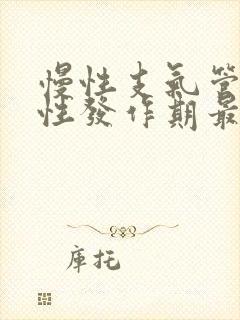 慢性支氣管
性發作期最
庫托